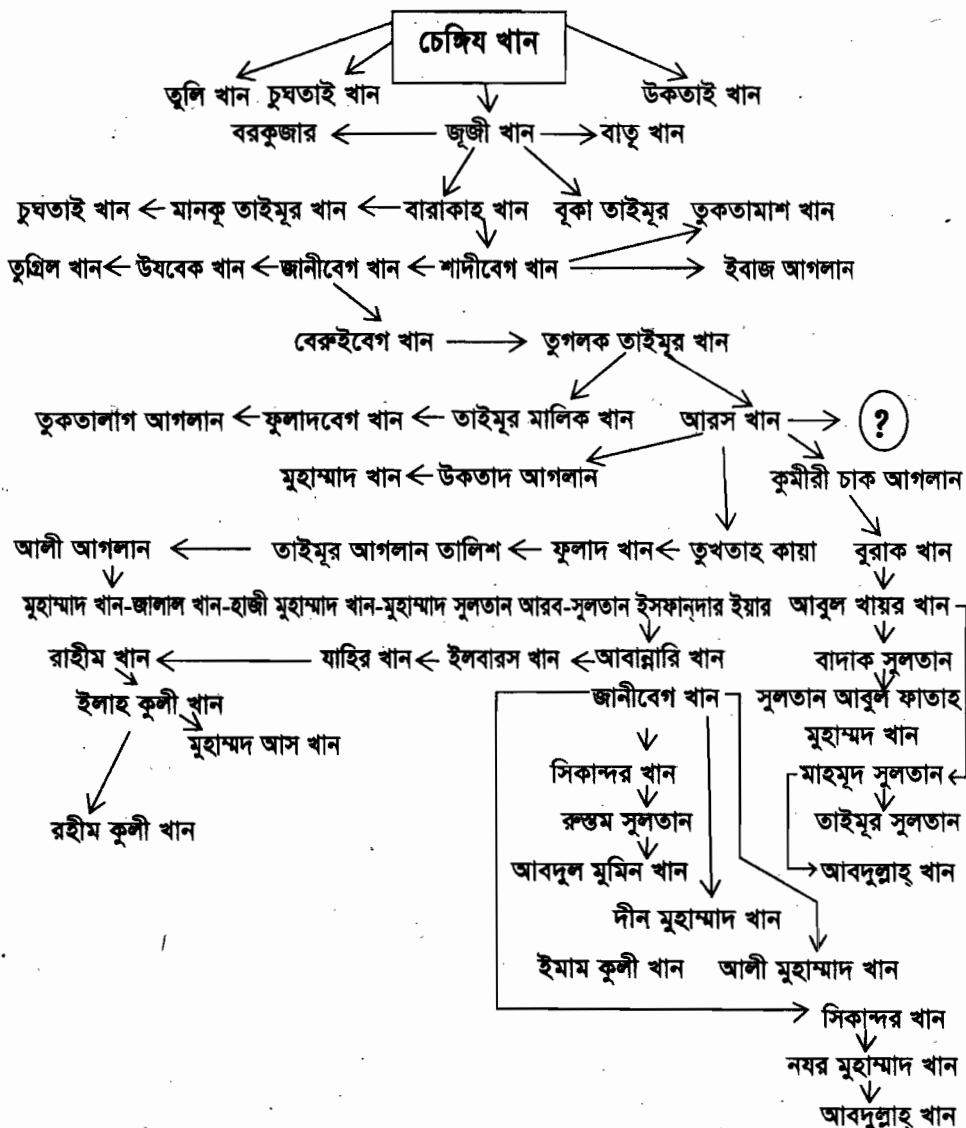 চেঙ্গিয খান
তুলি খান চুঘতাই খান উকতাই খান
বরকুজার ← জূজী খান → বাতূ খান
চুঘতাই খান ← মানকূ তাইমূর খান ← বারাকাহ খান বূকা তাইমূর তুকতামাশ খান
তুগ্রিল খান ← উযবেক খান ← জানীবেগ খান ← শাদীবেগ খান → ইবাজ আগলান
বেরুইবেগ খান → তুগলক তাইমূর খান
তুকতালাগ আগলান ← ফুলাদবেগ খান ← তাইমূর মালিক খান আরস খান → ?
মুহাম্মাদ খান ← উকতাদ আগলান কুমীরী চাক আগলান
আলী আগলান ← তাইমূর আগলান তালিশ ← ফুলাদ খান ← তুখতাহ কায়া বুরাক খান
মুহাম্মাদ খান-জালাল খান-হাজী মুহাম্মাদ খান-মুহাম্মাদ সুলতান আরব-সুলতান ইসফান্দার ইয়ার আবুল খায়র খান
রাহীম খান ← যাহির খান ← ইলবারস খান ← আবান্নারি খান বাদাক সুলতান
ইলাহ কুলী খান জানীবেগ খান সুলতান আবুল ফাতাহ
মুহাম্মদ আস খান মুহাম্মদ খান
সিকান্দর খান মাহমূদ সুলতান
রহীম কুলী খান রুস্তম সুলতান তাইমূর সুলতান
আবদুল মুমিন খান → আবদুল্লাহ্ খান
দীন মুহাম্মাদ খান
ইমাম কুলী খান আলী মুহাম্মাদ খান
→ সিকান্দর খান
নযর মুহাম্মাদ খান
আবদুল্লাহ্ খান